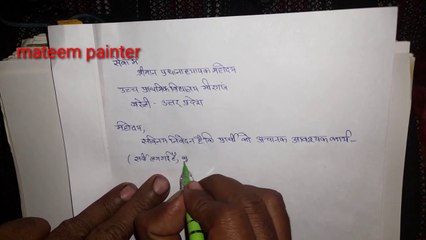 mateem painter
सेवा में
श्रीमान प्रधानाध्यापक महोदय
उच्च प्राथमिक विद्यालय
बरेली - उत्तर प्रदेश
महोदय,
सविनय निवेदन है कि प्रार्थी को अचानक आवश्यक कार्य -